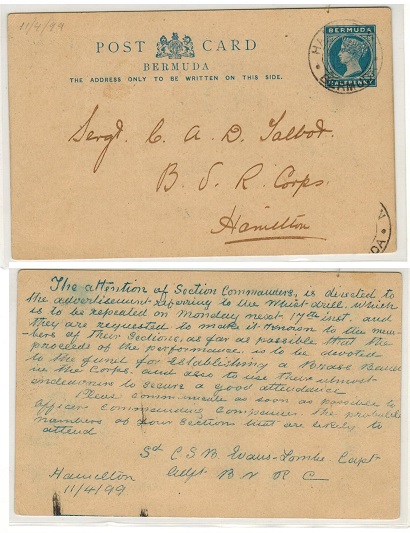 11/4/99
POST CARD
BERMUDA
THE ADDRESS ONLY TO BE WRITTEN ON THIS SIDE.
BERMUDA
HALFPENNY
Sergt. C. A. D. Talbot.
B. V. R. Corps.
Hamilton
The attention of Section Commanders, is directed to
the advertisement referring to the Whist-drill. which
is to be repeated on Monday next 17th inst. and
they are requested to make it known to the mem-
-bers of their Sections, as far as possible that the
proceeds of the performance is to be devoted
to the fund for Establishing a Brass Band
in the Corps, and also to use their utmost
endeavours to secure a good attendance
Please communicate as soon as possible to
Officer Commanding Companies the probable
numbers of your Section that are likely to
attend
Sd C. S. B. Evans-Lombe Capt
Adjt. B V R C
Hamilton
11/4/99